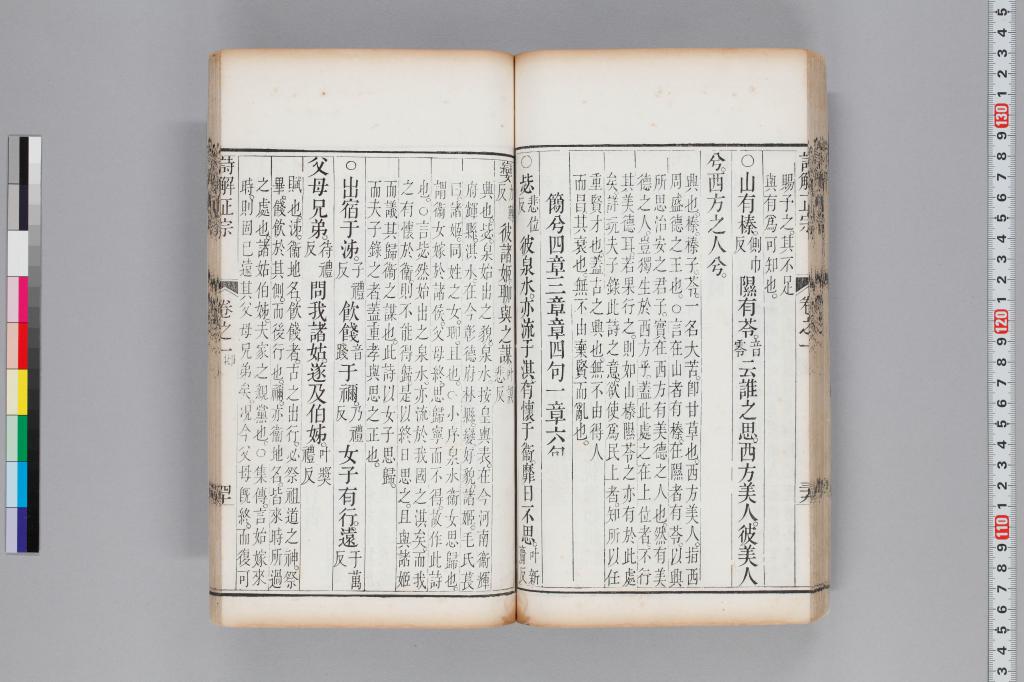 賜予之其不足
與有爲可知也。
○山有榛側巾反隰有苓音零云誰之思。西方美人。彼美人
兮。西方之人兮。
興也。榛榛子苓一名大苦卽甘草也西方美人。指西
周盛德之王也。○言在山者有榛在隰者有苓以興
所思治安之君子。實在西方有美德之人也然有美
德之人豈獨生於西方乎。蓋此處之在上位者不行
其美德耳若果行之。則如山榛隰苓之亦有於此處
矣詳玩夫子錄此詩之意。欲使爲民上者知所以任
重賢才也蓋古之興也無不由得人
而昌其衰也。無不由棄賢而亂也。
簡兮四章三章章四句一章六句
○毖悲位反彼泉水。亦流于淇有懷于衛靡日不思。叶新齎反
孌反彼諸姬聊與之謀叶謨悲反
興也。毖泉始出之貌泉水按皇輿表。在今河南衛輝
府輝縣淇水在今彰德府林縣。孌好貌諸姬。毛氏萇
曰諸姬同姓之女。聊。且也。○小序泉水衛女思歸也。
謂衛女嫁於諸侯。父母終。思歸寧而不得。故作此詩
也。○言毖然始出之泉水。亦流於我國之淇矣。而我
之有懷於衛則不能得歸是以終日思之。且與諸姬
而議其歸衛之謀也。此詩以女子思歸。
而夫子錄之者蓋重孝與思之正也。
○出宿于泲。子禮反飲餞音踐于禰。乃禮反女子有行。遠于萬反
父母兄弟。待禮反問我諸姑遂及伯姊。叶獎禮反
賦也。泲衛地名飲餞者。古之出行。必祭祖道之神。祭
畢。餞飲於其側。而後行也。禰亦衛地名。皆來時所過
之處也。諸姑伯姊。夫家之親黨也。○集傳。言始嫁來
時。則固已遠其父母兄弟矣。况今父母旣終。而復可
詩解正宗
卷之一